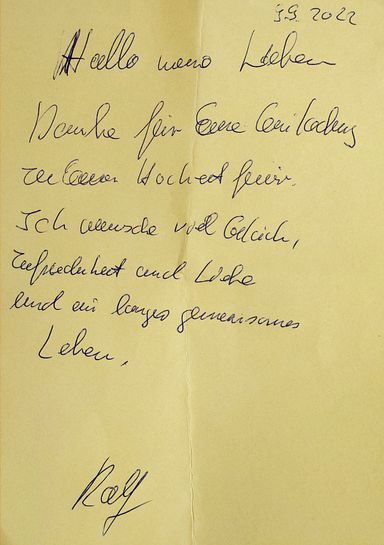 3.9. 2022
Hallo meno Lieben
Danke für Eure Einladung
zu Eurer Hochzeitfeier.
Ich wünsche viel Glück,
Zufriedenheit und Liebe
und ein langes gemeinsames
Leben.
Ralf